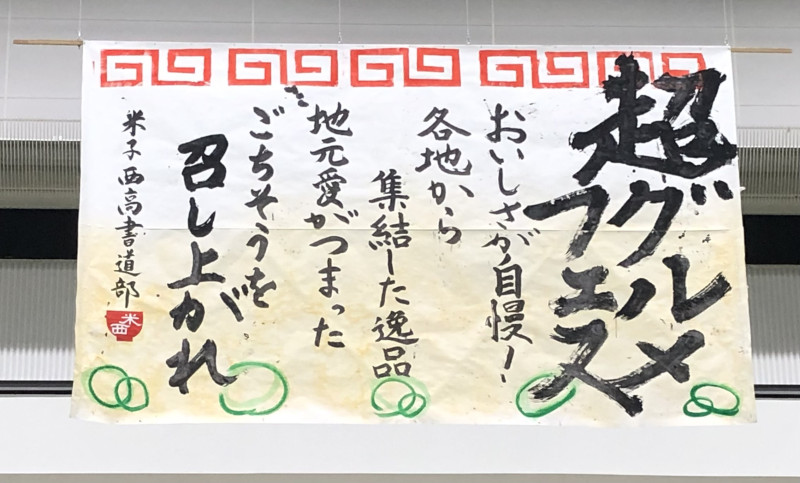 超グルメ
フェス
おいしさが自慢！
各地から
集結した逸品
地元愛がつまった
ごちそうを
召し上がれ
米子西高書道部
米西